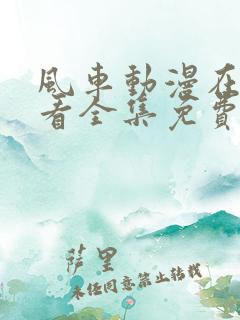 風車動漫在
看全集免費
萨里
未经同意禁止转载